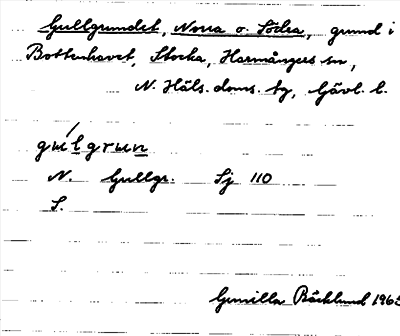 Gullgrundet, Norra o. Södra, grund i
Bottenhavet, Stocka, Harmångers sn,
N. Häls. doms. tg, Gävl. l.
gúlgrun
N. Gullgr. Sj 110
S.
Gunilla Bäcklund